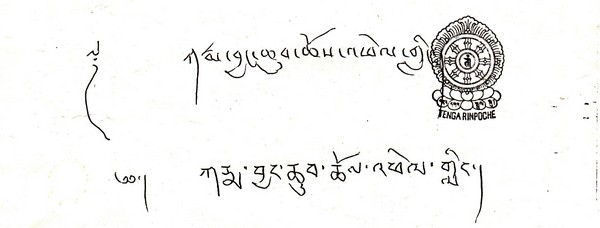 ཀརྨ་བྱང་ཆུབ་ཆོས་འཕེལ་གླིང་
TENGA RINPOCHE
༄༅། ཀརྨ་བྱང་ཆུབ་ཆོས་འཕེལ་གླིང་།